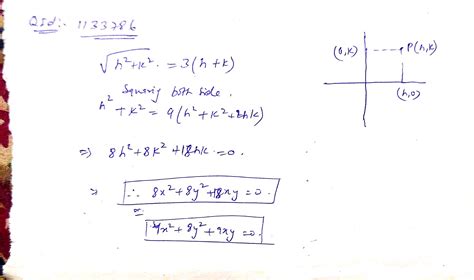 Qid:- 1133786
√h²+k² = 3(h+k)
Squaring both side.
h²+k² = 9(h²+k²+2hk)
⇒ 8h²+8k²+18hk=0.
⇒ ∴ 8x²+8y²+18xy=0.
or
4x²+8y²+9xy=0.
(0,k)
P(h,k)
(h,0)